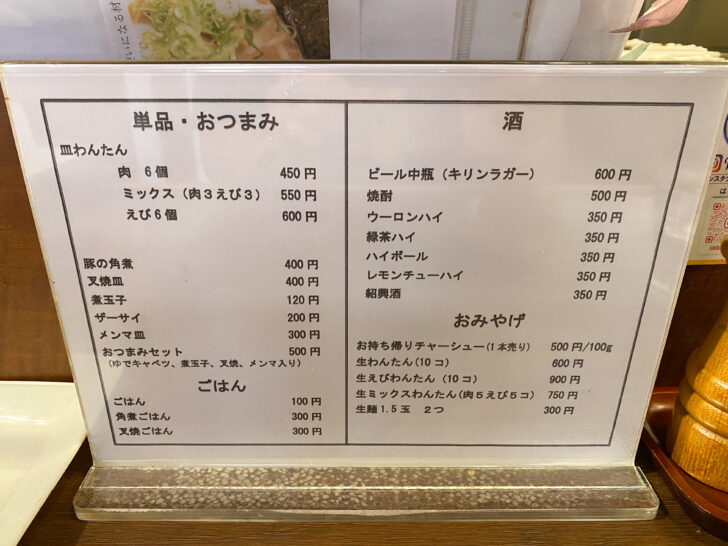 単品・おつまみ
皿わんたん
肉 6個 450円
ミックス（肉3えび3） 550円
えび6個 600円
豚の角煮 400円
叉焼皿 400円
煮玉子 120円
ザーサイ 200円
メンマ皿 300円
おつまみセット 500円
（ゆでキャベツ、煮玉子、叉焼、メンマ入り）
ごはん
ごはん 100円
角煮ごはん 300円
叉焼ごはん 300円
酒
ビール中瓶（キリンラガー） 600円
焼酎 500円
ウーロンハイ 350円
緑茶ハイ 350円
ハイボール 350円
レモンチューハイ 350円
紹興酒 350円
おみやげ
お持ち帰りチャーシュー(1本売り) 500円/100g
生わんたん(10コ) 600円
生えびわんたん（10コ） 900円
生ミックスわんたん(肉5えび5コ) 750円
生麺1.5玉 2つ 300円